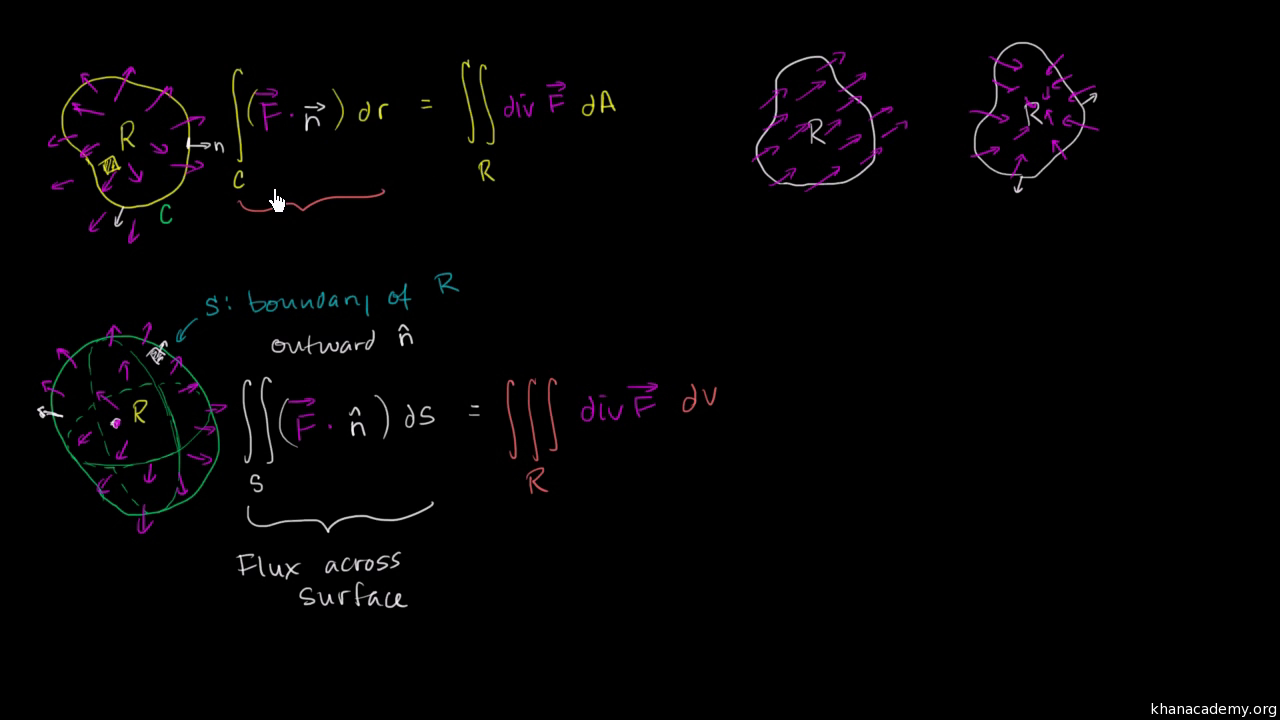 R
n
C
∫ (F⃗ · n⃗) dr = ∬ div F⃗ dA
C R
R
R
S: boundary of R
outward n̂
R
∬ (F⃗ · n̂) dS = ∭ div F⃗ dV
S R
Flux across
surface
khanacademy.org